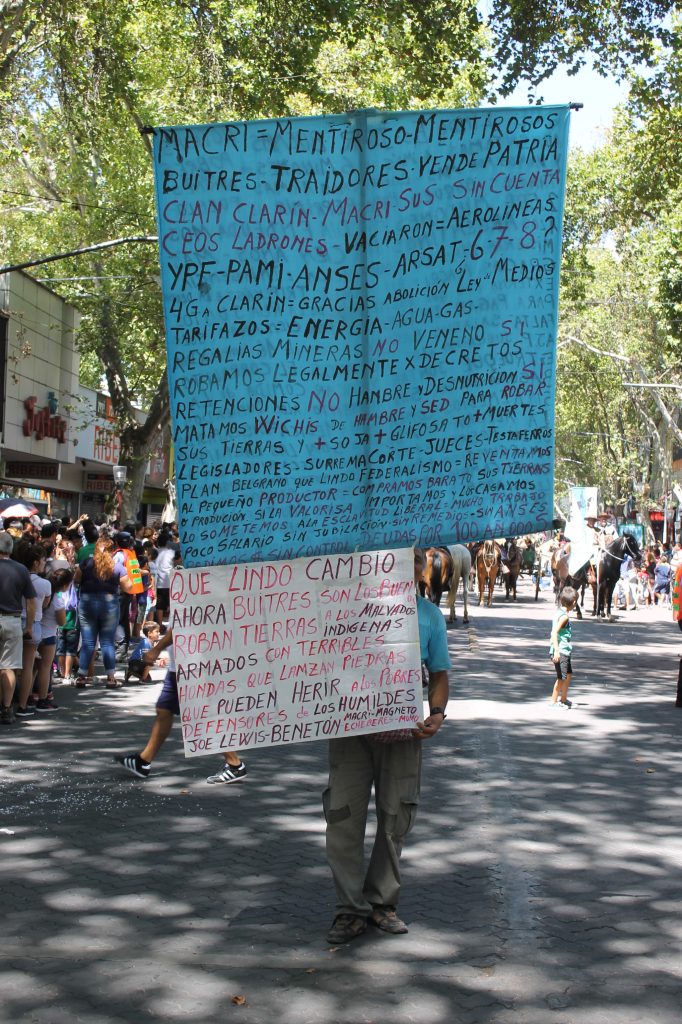 MACRI = MENTIROSO - MENTIROSOS
BUITRES - TRAIDORES - VENDE PATRIA
CLAN CLARÍN - MACRI - SUS SIN CUENTA
CEOS LADRONES - VACIARON = AEROLINEAS
YPF - PAMI - ANSES - ARSAT - 6-7-8?
4G A CLARÍN = GRACIAS ABOLICIÓN LEY de MEDIOS
TARIFAZOS = ENERGIA - AGUA - GAS -
REGALIAS MINERAS NO VENENO SI
ROBAMOS LEGALMENTE X DECRETOS
RETENCIONES NO HAMBRE y DESNUTRICIÓN SI
MATAMOS WICHIS DE HAMBRE y SED PARA ROBAR
SUS TIERRAS y + SOJA + GLIFOSATO + MUERTES
LEGISLADORES - SURREMA CORTE - JUECES - TESTAFERROS
PLAN BELGRANO QUE LINDO FEDERALISMO = REVENTAMOS
AL PEQUEÑO PRODUCTOR = COMPRAMOS BARATO SUS TIERRAS
o PRODUCIÓN SI LA VALORISA, IMPORTAMOS y LOS CAGAMOS
LO SOMETEMOS A LA ESCLAVITUD LIBERAL = MUCHO TRABAJO
POCO SALARIO SIN JUBILACIÓN - SIN REMEDIOS - SIN ANSES
SIN CONTROL DEUDAS POR 100 AÑOS
QUE LINDO CAMBIO
AHORA BUITRES SON LOS BUEN
ROBAN TIERRAS A LOS MALVADOS
INDIGENAS
ARMADOS CON TERRIBLES
HUNDAS QUE LAMZAN PIEDRAS
QUE PUEDEN HERIR A LOS POBRES
DEFENSORES de LOS HUMILDES
JOE LEWIS - BENETÓN MACRI - MAGNETO
RIBEIRO